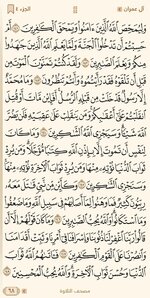 آل عمران
الجزء ٤
وَلِيُمَحِّصَ ٱللَّهُ ٱلَّذِينَ ءَامَنُوا۟ وَيَمْحَقَ ٱلْكَٰفِرِينَ ۝ أَمْ
حَسِبْتُمْ أَن تَدْخُلُوا۟ ٱلْجَنَّةَ وَلَمَّا يَعْلَمِ ٱللَّهُ ٱلَّذِينَ جَٰهَدُوا۟
مِنكُمْ وَيَعْلَمَ ٱلصَّٰبِرِينَ ۝ وَلَقَدْ كُنتُمْ تَمَنَّوْنَ ٱلْمَوْتَ مِن
قَبْلِ أَن تَلْقَوْهُ فَقَدْ رَأَيْتُمُوهُ وَأَنتُمْ تَنظُرُونَ ۝ وَمَا مُحَمَّدٌ
إِلَّا رَسُولٌ قَدْ خَلَتْ مِن قَبْلِهِ ٱلرُّسُلُ أَفَإِي۟ن مَّاتَ أَوْ قُتِلَ
ٱنقَلَبْتُمْ عَلَىٰٓ أَعْقَٰبِكُمْ وَمَن يَنقَلِبْ عَلَىٰ عَقِبَيْهِ فَلَن يَضُرَّ
ٱللَّهَ شَيْـًٔا وَسَيَجْزِى ٱللَّهُ ٱلشَّٰكِرِينَ ۝ وَمَا كَانَ
لِنَفْسٍ أَن تَمُوتَ إِلَّا بِإِذْنِ ٱللَّهِ كِتَٰبًا مُّؤَجَّلًا وَمَن يُرِدْ
ثَوَابَ ٱلدُّنْيَا نُؤْتِهِۦ مِنْهَا وَمَن يُرِدْ ثَوَابَ ٱلْءَاخِرَةِ نُؤْتِهِۦ مِنْهَا
وَسَنَجْزِى ٱلشَّٰكِرِينَ ۝ وَكَأَيِّن مِّن نَّبِىٍّ قَٰتَلَ مَعَهُۥ
رِبِّيُّونَ كَثِيرٌ فَمَا وَهَنُوا۟ لِمَآ أَصَابَهُمْ فِى سَبِيلِ ٱللَّهِ وَمَا ضَعُفُوا۟
وَمَا ٱسْتَكَانُوا۟ وَٱللَّهُ يُحِبُّ ٱلصَّٰبِرِينَ ۝ وَمَا كَانَ قَوْلَهُمْ إِلَّآ أَن
قَالُوا۟ رَبَّنَا ٱغْفِرْ لَنَا ذُنُوبَنَا وَإِسْرَافَنَا فِىٓ أَمْرِنَا وَثَبِّتْ أَقْدَامَنَا
وَٱنصُرْنَا عَلَى ٱلْقَوْمِ ٱلْكَٰفِرِينَ ۝ فَـَٔاتَىٰهُمُ ٱللَّهُ ثَوَابَ
ٱلدُّنْيَا وَحُسْنَ ثَوَابِ ٱلْءَاخِرَةِ وَٱللَّهُ يُحِبُّ ٱلْمُحْسِنِينَ ۝
٦٨
مصحف التلاوة